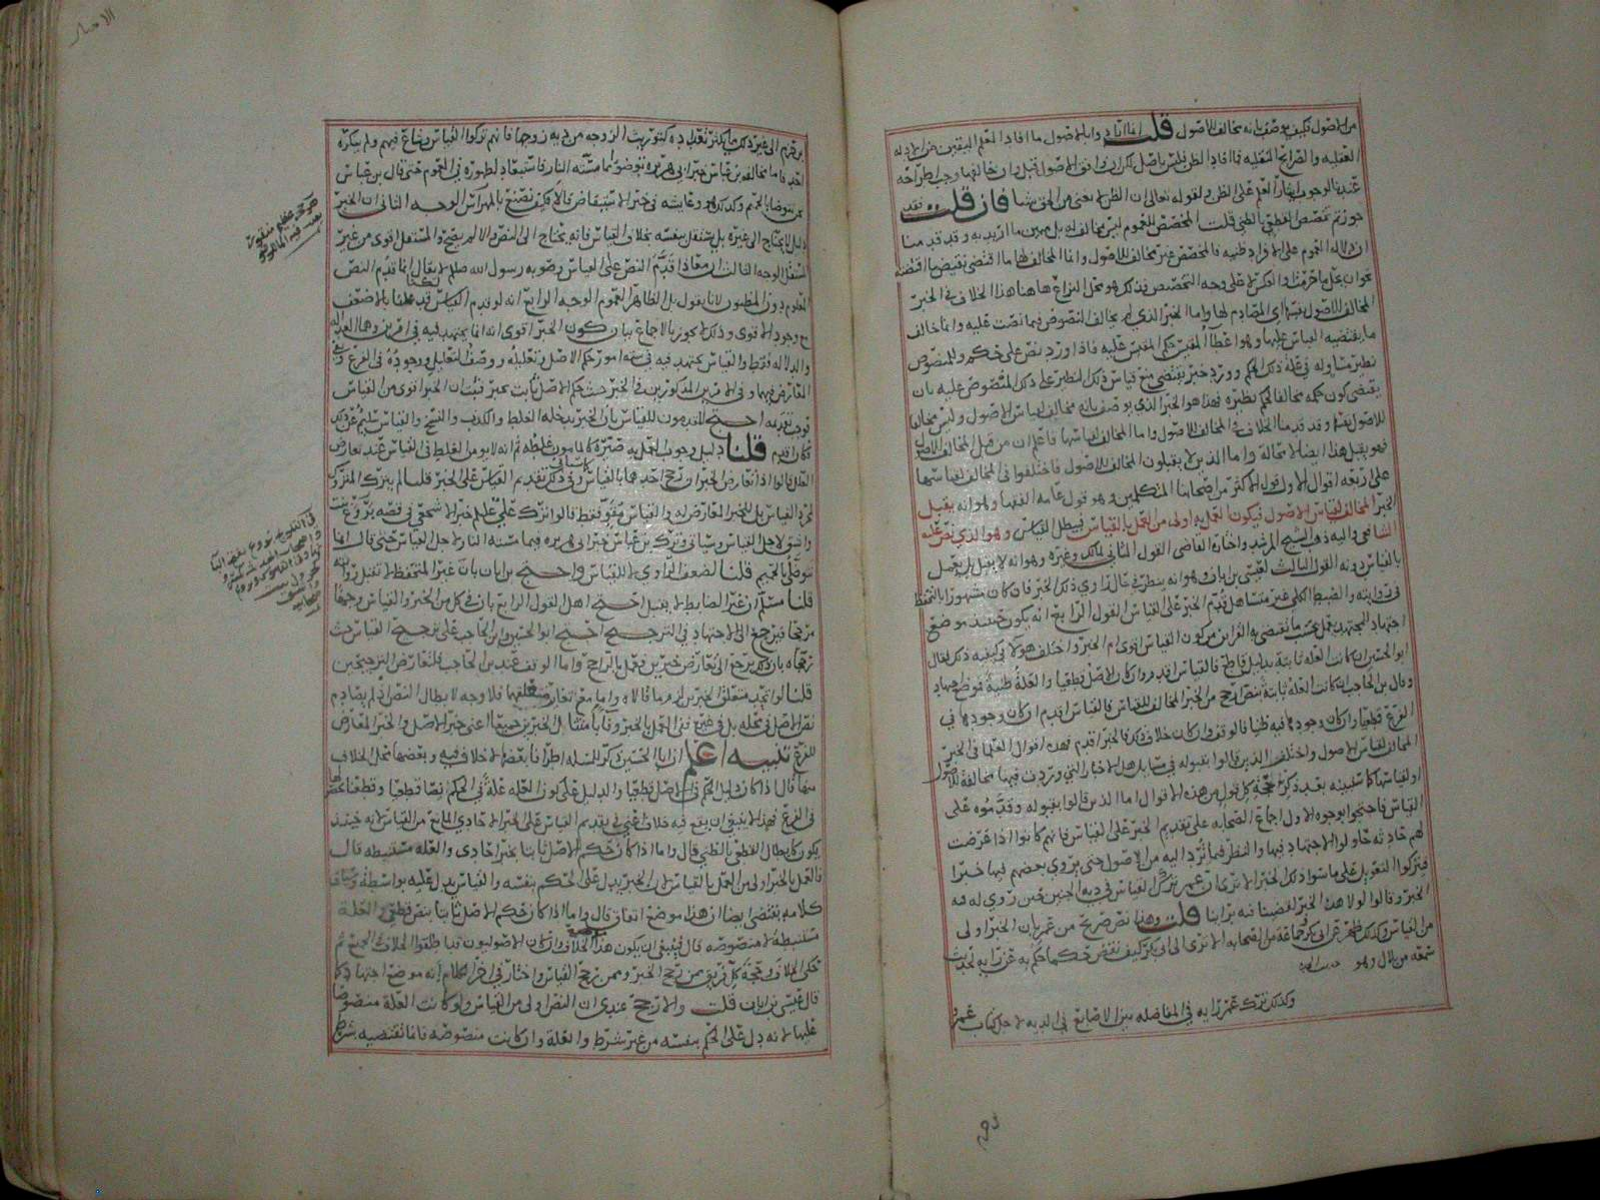 من الاصول فكيف يوصف بانه مخالف للاصول قلت انما اراد وابالاصول ما افاد العلم اليقين من الادله
العقليه والصرايح النقليه فما افاد الظن فليس باصل لكن ان وافق الاصول قبل وان خالفها وجب اطراحه
ان الظن لا يغنى من الحق شيا فان قلت فقد
جوزتم تخصيص القطعي بالظني قلت المخصص للعموم ليس مخالف له بل مبين ما اريد به وقد قدمنا
ان دلاله العموم على الافراد ظنيه فالمخصص غير مخالف للاصول وانما المخالف لها ما اقتضى نقيض ما اقتضته
على وجه التخصيص فذلك هو محل النزاع هاهنا هذا الخلاف في الخبر
المخالف للاصول نفسها اى المصادم لها واما الخبر الذي لم يخالف النصوص فيما نصت عليه وانما خالف
ما يقتضيه القياس عليها وهو اعطا المقيس حكم المقيس عليه فاذا ورد نص على حكم وللمنصوص
نظير مشاركه في علة ذلك الحكم وورد خبر يقتضي منع قياس ذلك النظير على ذلك المنصوص عليه بان
يقتضي كون حكمه مخالفا لحكم نظيره فهذا هو الخبر الذي يوصف بانه مخالف لقياس الاصول وليس مخالفا
للاصول نفسها وقد قدمنا الخلاف في المخالف للاصول واما المخالف لقياسها فاعلم ان من قبل المخالف للاصول
فهو يقبل هذا ايضا لا محالة واما الذين لا يقبلون المخالف للاصول فاختلفوا في المخالف لقياسها
على اربعه اقوال الاول قول الاكثر من اصحابنا المتكلمين وهو قول عامه الفقها وهو انه يقبل
الخبر المخالف لقياس الاصول فيكون العمل به اولى من العمل بالقياس فيبطل القياس وهو الذي نص عليه
الشافعي واليه ذهب الشيخ المرشد واختاره القاضي القول الثاني لمالك وغيره وهو انه لا يقبل بل يعمل
بالقياس دونه القول الثالث لعيسى بن ابان وهو انه ينظر في حال راوي ذلك الخبر فان كان مشهورا بالتحفظ
في روايته والضبط الكلي غير متساهل قدم الخبر على القياس القول الرابع انه يكون حينئذ موضع
اجتهاد المجتهدين فيعمل بحسب ما تقتضي به القراين من كون القياس اقوى ام الخبر واختلف هولا في كيفيه ذلك فقال
ابو الحسين ان كانت العله ثابتة بدليل قاطع فالقياس اقدم وان كان الاصل قطعيا والعلة ظنية فموضع اجتهاد
وقال بن الحاجب ان كانت العلة ثابتة بنص ارجح من الخبر المخالف للقياس فالقياس اقدم ان كان وجودها في
الفرع قطعيا وان كان وجودها فيه ظنيا فالوقف وان كان خلاف ذلك فالخبر اقدم فهذه اقوال العلما في الخبر
المخالف لقياس الاصول واختلف الذين قالوا بقبوله في مسايل هل الاخبار التي وردت فيها مخالفة للاصول
او لقياسها كما سنبينه بعد ذكر حجة كل قول من هذه الاقوال اما الذين قالوا بقبوله وقدموه على
القياس فاحتجوا بوجوه الاول اجماع الصحابه على تقديم الخبر على القياس فانهم كانوا اذا عرضت
لهم حادثه حاولوا الاجتهاد فيها والنظر فيما ترد اليه من الاصول حتى يروي بعضهم فيها خبرا
فيتركوا التعويل على ما سوا ذلك الخبر الا ترى ان عمر ترك القياس في ديه الجنين حين روي له فيه
الخبر وقالوا لولا هذا الخبر لقضينا فيه براينا قلت وهذا نص صريح من عمر بان الخبر اولى
من القياس وكذلك ظهر عن ابى بكر وجماعة من الصحابه الا ترى الى ابى بكر كيف نقض حكما حكم به عن رايه لحديث
سمعه من بلال وهو
وكذلك ترك عمر رايه في المفاضله بين الاصابع في الديه لاجل كتاب عمرو
بن حزم الى غير ذلك مما يكثر تعداده كتوريث الزوجه من ديه زوجها فانهم تركوا القياس وشاع فيهم ولم ينكره
احد فاما مخالفه بن عباس خبر ابى هريره توضوا مما مسته النار فاستبعاد لظهوره في العموم حتى قال بن عباس
وكذلك هو وعايشه في خبر الاستيقاض قالا فكيف نصنع بالمهراس الوجه الثاني ان الخبر
دليل لا يحتاج الى غيره بل يستقل بنفسه بخلاف القياس فانه يحتاج الى النص والا لم يصح والمستقل اقوى من غير
المستقل الوجه الثالث ان معاذا قدم النص على القياس وصوبه رسول الله صلعم لا يقال انما قدم النص
المعلوم دون المظنون لانا نقول بل الظاهر العموم الوجه الرابع انه لو قدم القياس لقدم الاضعف
مع وجود الاقوى وذلك لا يجوز بالاجماع بيان كون الخبر اقوى انه انما يجتهد فيه في امرين وهما العداله
والدلاله فقط والقياس يجتهد فيه في سته امور حكم الاصل وتعليله ووصف التعليل ووجوده في الفرع ونفي
المعارض فيهما وفي الامرين المذكورين في الخبر حيث حكم الاصل ثابت بخبر فثبت ان الخبر اقوى من القياس
فوجب تقديمه احتج المقدمون للقياس بان الخبر يدخله الغلط والكذب والنسخ والقياس سليم عن ذلك
فكان اقدم قلنا دليل وجوب العمل به صيره كالمامون غلطه ثم انه لا يومن الغلط في القياس عند تعارض
العلل قالوا اذا تعارض الخبران رجح احدهما بالقياس وفي ذلك تقديم القياس على الخبر قلنا لم يترك المتروك
لمجرد القياس بل للخبر المعارض له والقياس مقو فقط قالوا ترك علي عليلم خبر الاشجعي في قصه بروع بنت
واشق لاجل القياس وسياتي وترك بن عباس خبر ابى هريره فيما مسته النار لاجل القياس حتى قال انما
نتوضى بالحميم قلنا لضعف الراوي لا للقياس واحتج بن ابان بان غير المتحفظ لا تقبل روايته
قلنا مسلم ان غير الضابط لا يقبل احتج اهل القول الرابع بان في كل من الخبر والقياس وجها
مرجحا فيرجع الى الاجتهاد في الترجيح احتج ابو الحسين وابن الحاجب على ترجيح القياس حيث
رجحاه بان ذلك يرجع الى تعارض خبرين فيعمل بالراجح واما الوقف عند بن الحاجب فلتعارض الترجيحين
قلنا لو اتحد متعلق الخبرين لزم ما قالاه واما مع تغاير متعلقهما فلا وجه لابطال النص اذ لم يصادم
نص الاصل في محله بل في غيره
للفرع تنبيه اعلم ان ابا الحسين ذكر للمسله اطرافا بعضها لا خلاف فيه وبعضها محل الخلاف
منها قال اذا كان دليل الحكم في الاصل قطعيا والدليل على كون العله علة في الحكم نصا قطعيا وقطعنا بحصولها
في الفرع فهذا لا ينبغي ان يقع فيه خلاف اعنى في تقديم القياس على الخبر الاحادي المانع من القياس لانه حينئذ
يكون كابطال القطعي بالظني قال واما اذا كان حكم الاصل ثابتا بخبر احادى والعله مستنبطه قال
فالعمل بالخبر اولى من العمل بالقياس لان الخبر يدل على الحكم بنفسه والقياس يدل عليه بواسطة وسياق
كلامه يقتضى ايضا ان هذا موضع اتفاق قال واما اذا كان حكم الاصل ثابتا بنص قطعي والعلة
مستنبطة لا منصوصه قال فينبغي ان يكون هذا موضع الخلاف وان كان الاصوليون قد اطلقوا الخلاف في الجميع ثم
حكى الخلاف وحجة كل فريق ممن رجح الخبر وممن رجح القياس واختار في اخر الكلام انه موضع اجتهاد كما
قال عيسى بن ابان قلت والارجح عندي ان النص اولى من القياس ولو كانت العلة منصوصا
عليها لانه دل على الحكم بنفسه من غير شرط والعلة وان كانت منصوصه فانما تقتضيه بشرط